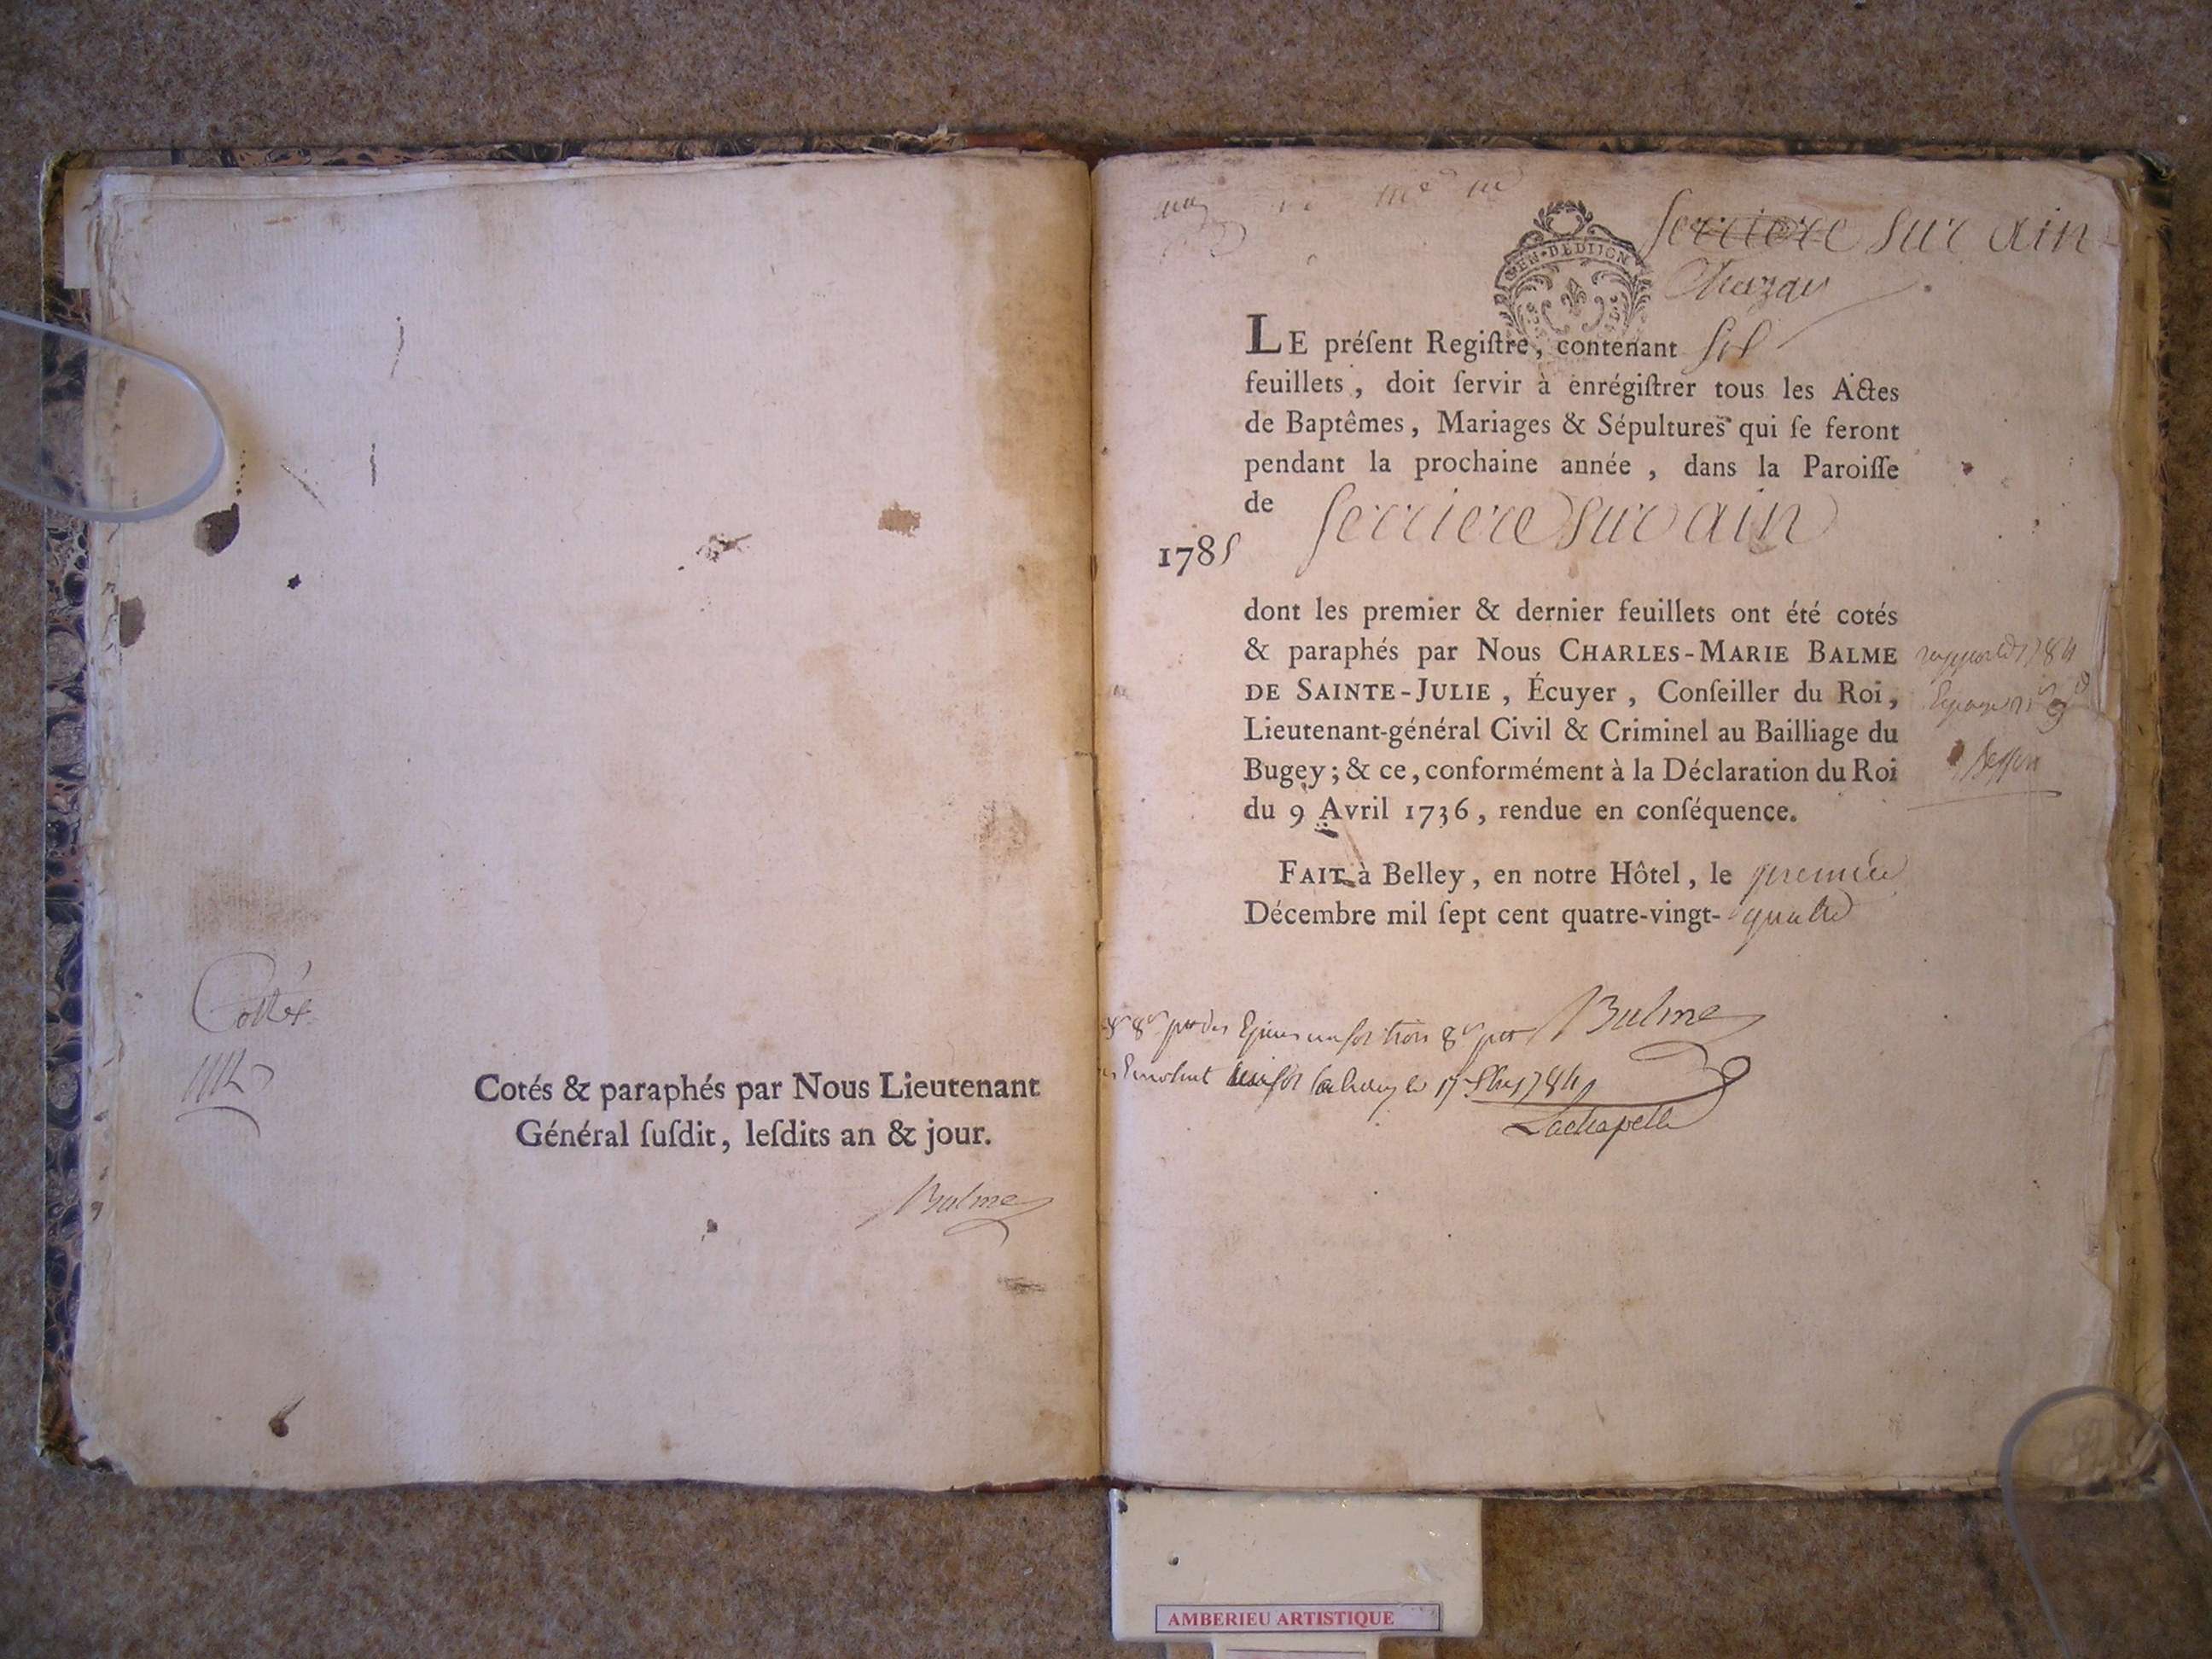 Cottés
Cotés & paraphés par Nous Lieutenant
Général ſuſdit, leſdits an & jour.
Balme
ſerriere sur ain
GEN·DE DIJON
LE préſent Regiſtre, contenant
feuillets, doit ſervir à enrégiſtrer tous les Actes
de Baptêmes, Mariages & Sépultures qui ſe feront
pendant la prochaine année, dans la Paroiſſe
de ſerriere sur ain
1785
dont les premier & dernier feuillets ont été cotés
& paraphés par Nous CHARLES-MARIE BALME
DE SAINTE-JULIE, Écuyer, Conſeiller du Roi,
Lieutenant-général Civil & Criminel au Bailliage du
Bugey; & ce, conformément à la Déclaration du Roi
du 9 Avril 1736, rendue en conſéquence.
FAIT à Belley, en notre Hôtel, le premier
Décembre mil ſept cent quatre-vingt-quatre
1784
Balme
Lachapelle
AMBERIEU ARTISTIQUE